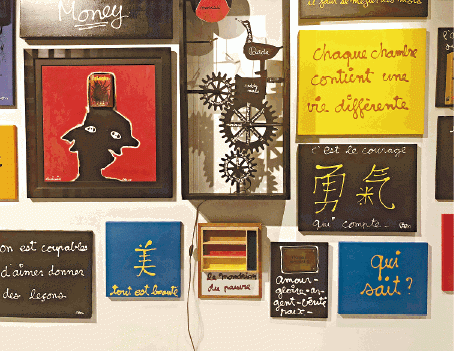 Money
il faut se méfier des mots
Chaque chambre
contient une
vie différente
c'est le courage
勇气
qui compte. Ben
on est coupables
d'aimer donner
des leçons
美
tout est beauté
le mondrian
du pauvre
amour-
gloire-ar-
gent-vérité
paix-
qui
sait?